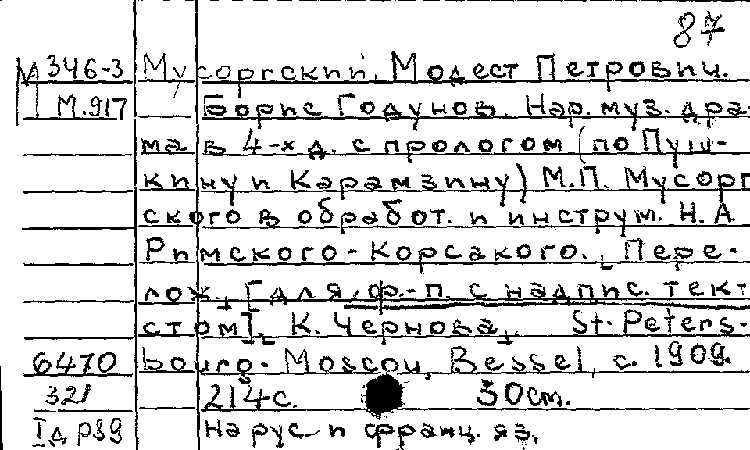 87
М 346-3 Мусоргский, Модест Петрович.
М.917 Борис Годунов. Нар. муз. дра-
ма в 4-х д. с прологом (по Пуш-
кину и Карамзину) М.П. Мусорг
ского в обработ. и инструм. Н.А
Римского-Корсакого. Пере-
лож. [для ф.-п. с надпис. текст
стом]. К. Чернова. St. Peters-
6470 bourg. Moscou, Bessel, c. 1909.
321 214 с. 30 cm.
На рус. и франц. яз.